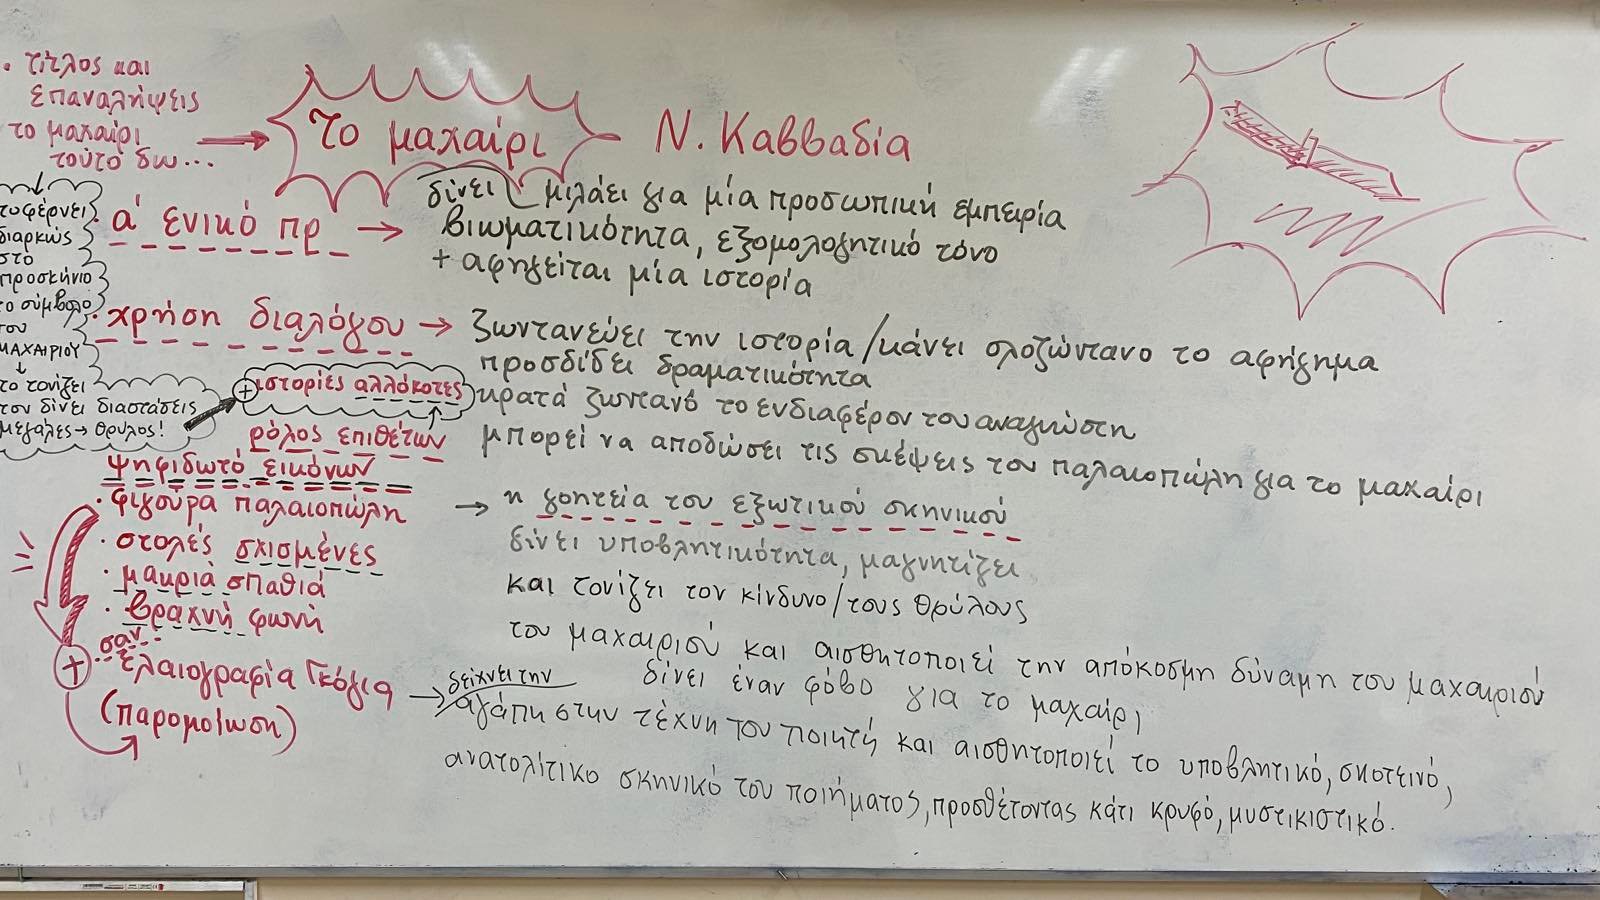 . τίτλος και
επαναλήψεις
το μαχαίρι
τούτο δω...
το μαχαίρι
Ν. Καββαδία
το φέρνει
διαρκώς
στο
προσκήνιο
το σύμβολο
του
ΜΑΧΑΙΡΙΟΥ
↓
το τονίζει
του δίνει διαστάσεις
μεγάλες → θρύλος!
· α' ενικό πρ →
δίνει μιλάει για μία προσωπική εμπειρία
βιωματικότητα, εξομολογητικό τόνο
+ αφηγείται μία ιστορία
· χρήση διαλόγου →
ζωντανεύει την ιστορία / κάνει ολοζώντανο το αφήγημα
προσδίδει δραματικότητα
κρατά ζωντανό το ενδιαφέρον του αναγνώστη
μπορεί να αποδώσει τις σκέψεις του παλαιοπώλη για το μαχαίρι
+ ιστορίες αλλόκοτες
ρόλος επιθέτων
ψηφιδωτό εικόνων
· φιγούρα παλαιοπώλη
· στολές σχισμένες
· μακριά σπαθιά
· βραχνή φωνή
→ η γοητεία του εξωτικού σκηνικού
δίνει υποβλητικότητα, μαγνητίζει
και τονίζει τον κίνδυνο / τους θρύλους
του μαχαιριού και αισθητοποιεί την απόκοσμη δύναμη του μαχαιριού
δίνει έναν φόβο για το μαχαίρι
+ σαν
ελαιογραφία Γκόγια
(παρομοίωση)
→ δείχνει την
αγάπη στην τέχνη του ποιητή και αισθητοποιεί το υποβλητικό, σκοτεινό,
ανατολίτικο σκηνικό του ποιήματος, προσθέτοντας κάτι κρυφό, μυστικιστικό.